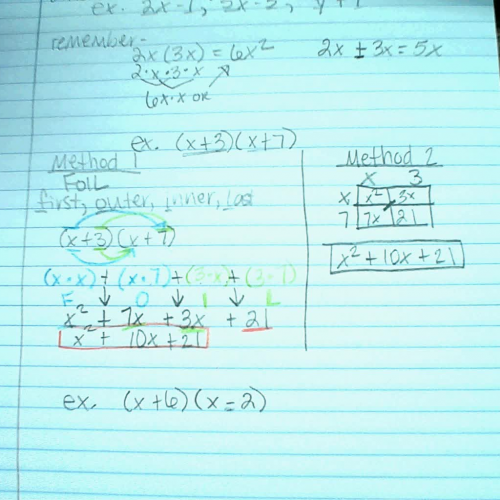 ex. 2x-1, 2x-2, y+1
remember-
2x(3x) = 6x²
2·x·3·x
6x·x or
2x ± 3x = 5x
ex. (x+3)(x+7)
Method 1
FOIL
first, outer, inner, last
(x+3)(x+7)
(x·x)+(x·7)+(3·x)+(3·7)
F O I L
x² + 7x + 3x + 21
x² + 10x + 21
Method 2
x 3
x x² 3x
7 7x 21
x² + 10x + 21
ex. (x+6)(x-2)